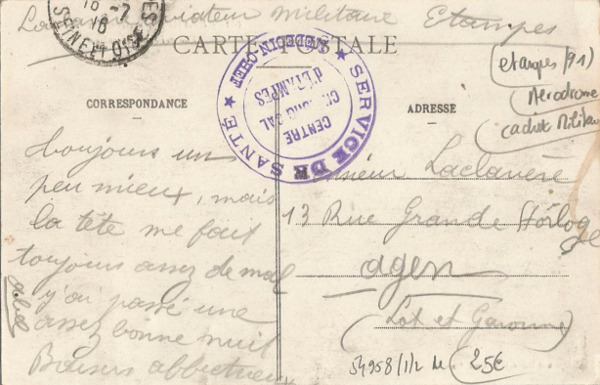 Militaire Etampes
16 -7
16
SEINE-ET-OISE
CARTE POSTALE
CORRESPONDANCE
ADRESSE
★ SERVICE DE SANTÉ ★
MÉDECIN-CHEF
CENTRE
CHIRURGICAL
d'ÉTAMPES
etampes (91)
Aérodrome
cachet Militaire
toujours un
peu mieux, mais
la tête me fait
toujours assez de mal
j'ai passé une
assez bonne nuit
Baisers affectueux
Abel
Monsieur Laclavère
13 Rue Grande Horloge
agen
(Lot et Garonne)
54958/1/2 M
25€